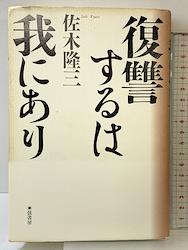 復讐
するは
我にあり
佐木隆三